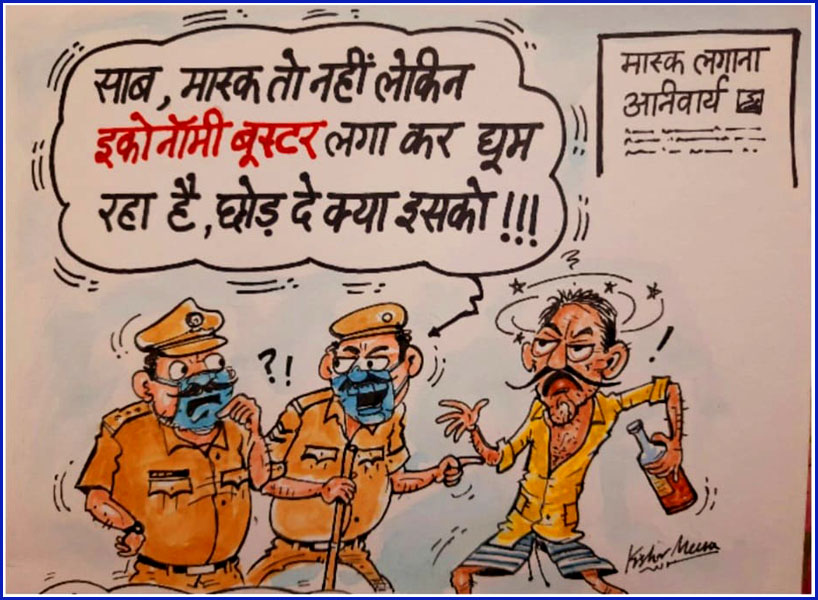 साब, मास्क तो नहीं लेकिन
इकोनॉमी बूस्टर लगा कर घूम
रहा है, छोड़ दे क्या इसको !!!
मास्क लगाना
अनिवार्य
?!
!
Kishor Meena